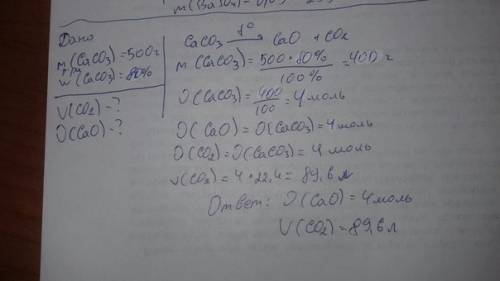 m(BaSO₄) =
Дано
m(CaCO₃) = 500 г
w(CaCO₃) = 80%
V(CO₂) - ?
ν(CaO) - ?
CaCO₃ →t° CaO + CO₂
m(CaCO₃) = 500 * 80% / 100% = 400 г
ν(CaCO₃) = 400 / 100 = 4 моль
ν(CaO) = ν(CaCO₃) = 4 моль
ν(CO₂) = ν(CaCO₃) = 4 моль
V(CO₂) = 4 * 22,4 = 89,6 л
Ответ: ν(CaO) = 4 моль
V(CO₂) = 89,6 л